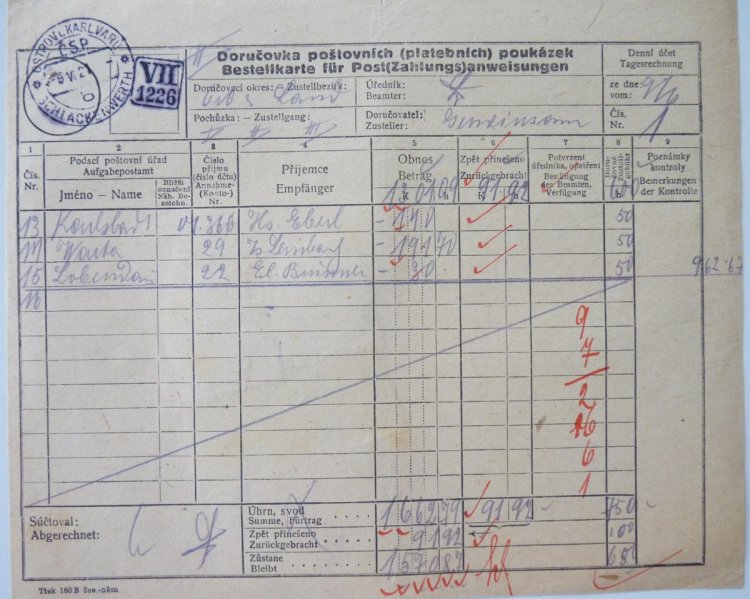 OSTROV U KARL.VARŮ
Č.S.P.
9 VI 21
SCHLACKENWERTH
VII
1226
Doručovka poštovních (platebních) poukázek
Bestellkarte für Post(Zahlungs)anweisungen
Denní účet
Tagesrechnung
Doručovací okres: – Zustellbezirk:
Ort & Land
Úředník:
Beamter:
ze dne:
vom: 9/6
Pochůzka: – Zustellgang:
Doručovatel:
Zusteller: Gemeinsam
Čís.
Nr. 1
1 2 3 4 5 6 7 8 9
Čís.
Nr.
Podací poštovní úřad
Aufgabepostamt
Jméno – Name
Bližší
označení
Näh. Be-
zeichn.
Číslo
příjmu
(číslo účtu)
Annahme-
(Konto-)
Nr.
Příjemce
Empfänger
Obnos
Betrag
K h
Zpět přineseno
Zurückgebracht
K h
Potvrzení
úředníka, opatření
Bestätigung
des Beamten,
Verfügung
Poznámky
kontroly
Bemerkungen
der Kontrolle
130109 9192 600
13 Karlsbad 1 366 Hs. Eberl 140 50
14 Warta 29 19170 50
15 Lobendau 22 80 50 962·67
16
9
7
2
16
6
1
Súčtoval:
Abgerechnet:
Úhrn, svod
Summe, Fürtrag 166279 9192 – 750 –
Zpět přineseno
Zurückgebracht 9192 100
Zůstane
Bleibt 157087 650
Tisk 160 B čes.-něm.